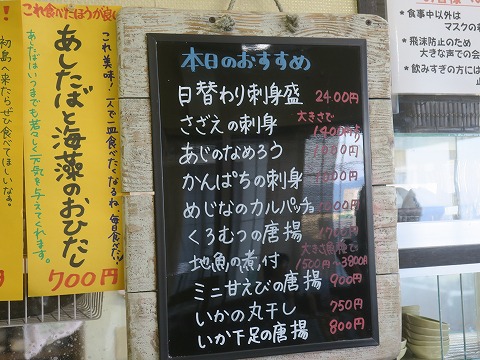 これ食べたほうが良い
初島へ来たらぜひ食べてほしいなぁ。
これ美味！一人で一皿食べたくなるね
毎日食べたい
あしたばと海藻のおひたし
あしたばはいつまでも若々しく元気を与えてくれます。
700円
本日のおすすめ
日替わり刺身盛 2400円
さざえの刺身 大きさで 1400円
あじのなめろう
かんぱちの刺身
めじなのカルパッチョ
くろむつの唐揚
地魚の煮付 大きさ魚種で 1500円～3800円
ミニ甘えびの唐揚 900円
いかの丸干し 750円
いか下足の唐揚 800円
*食事中以外は
マスクの
*飛沫防止のため
大きな声での会
*飲みすぎの方には